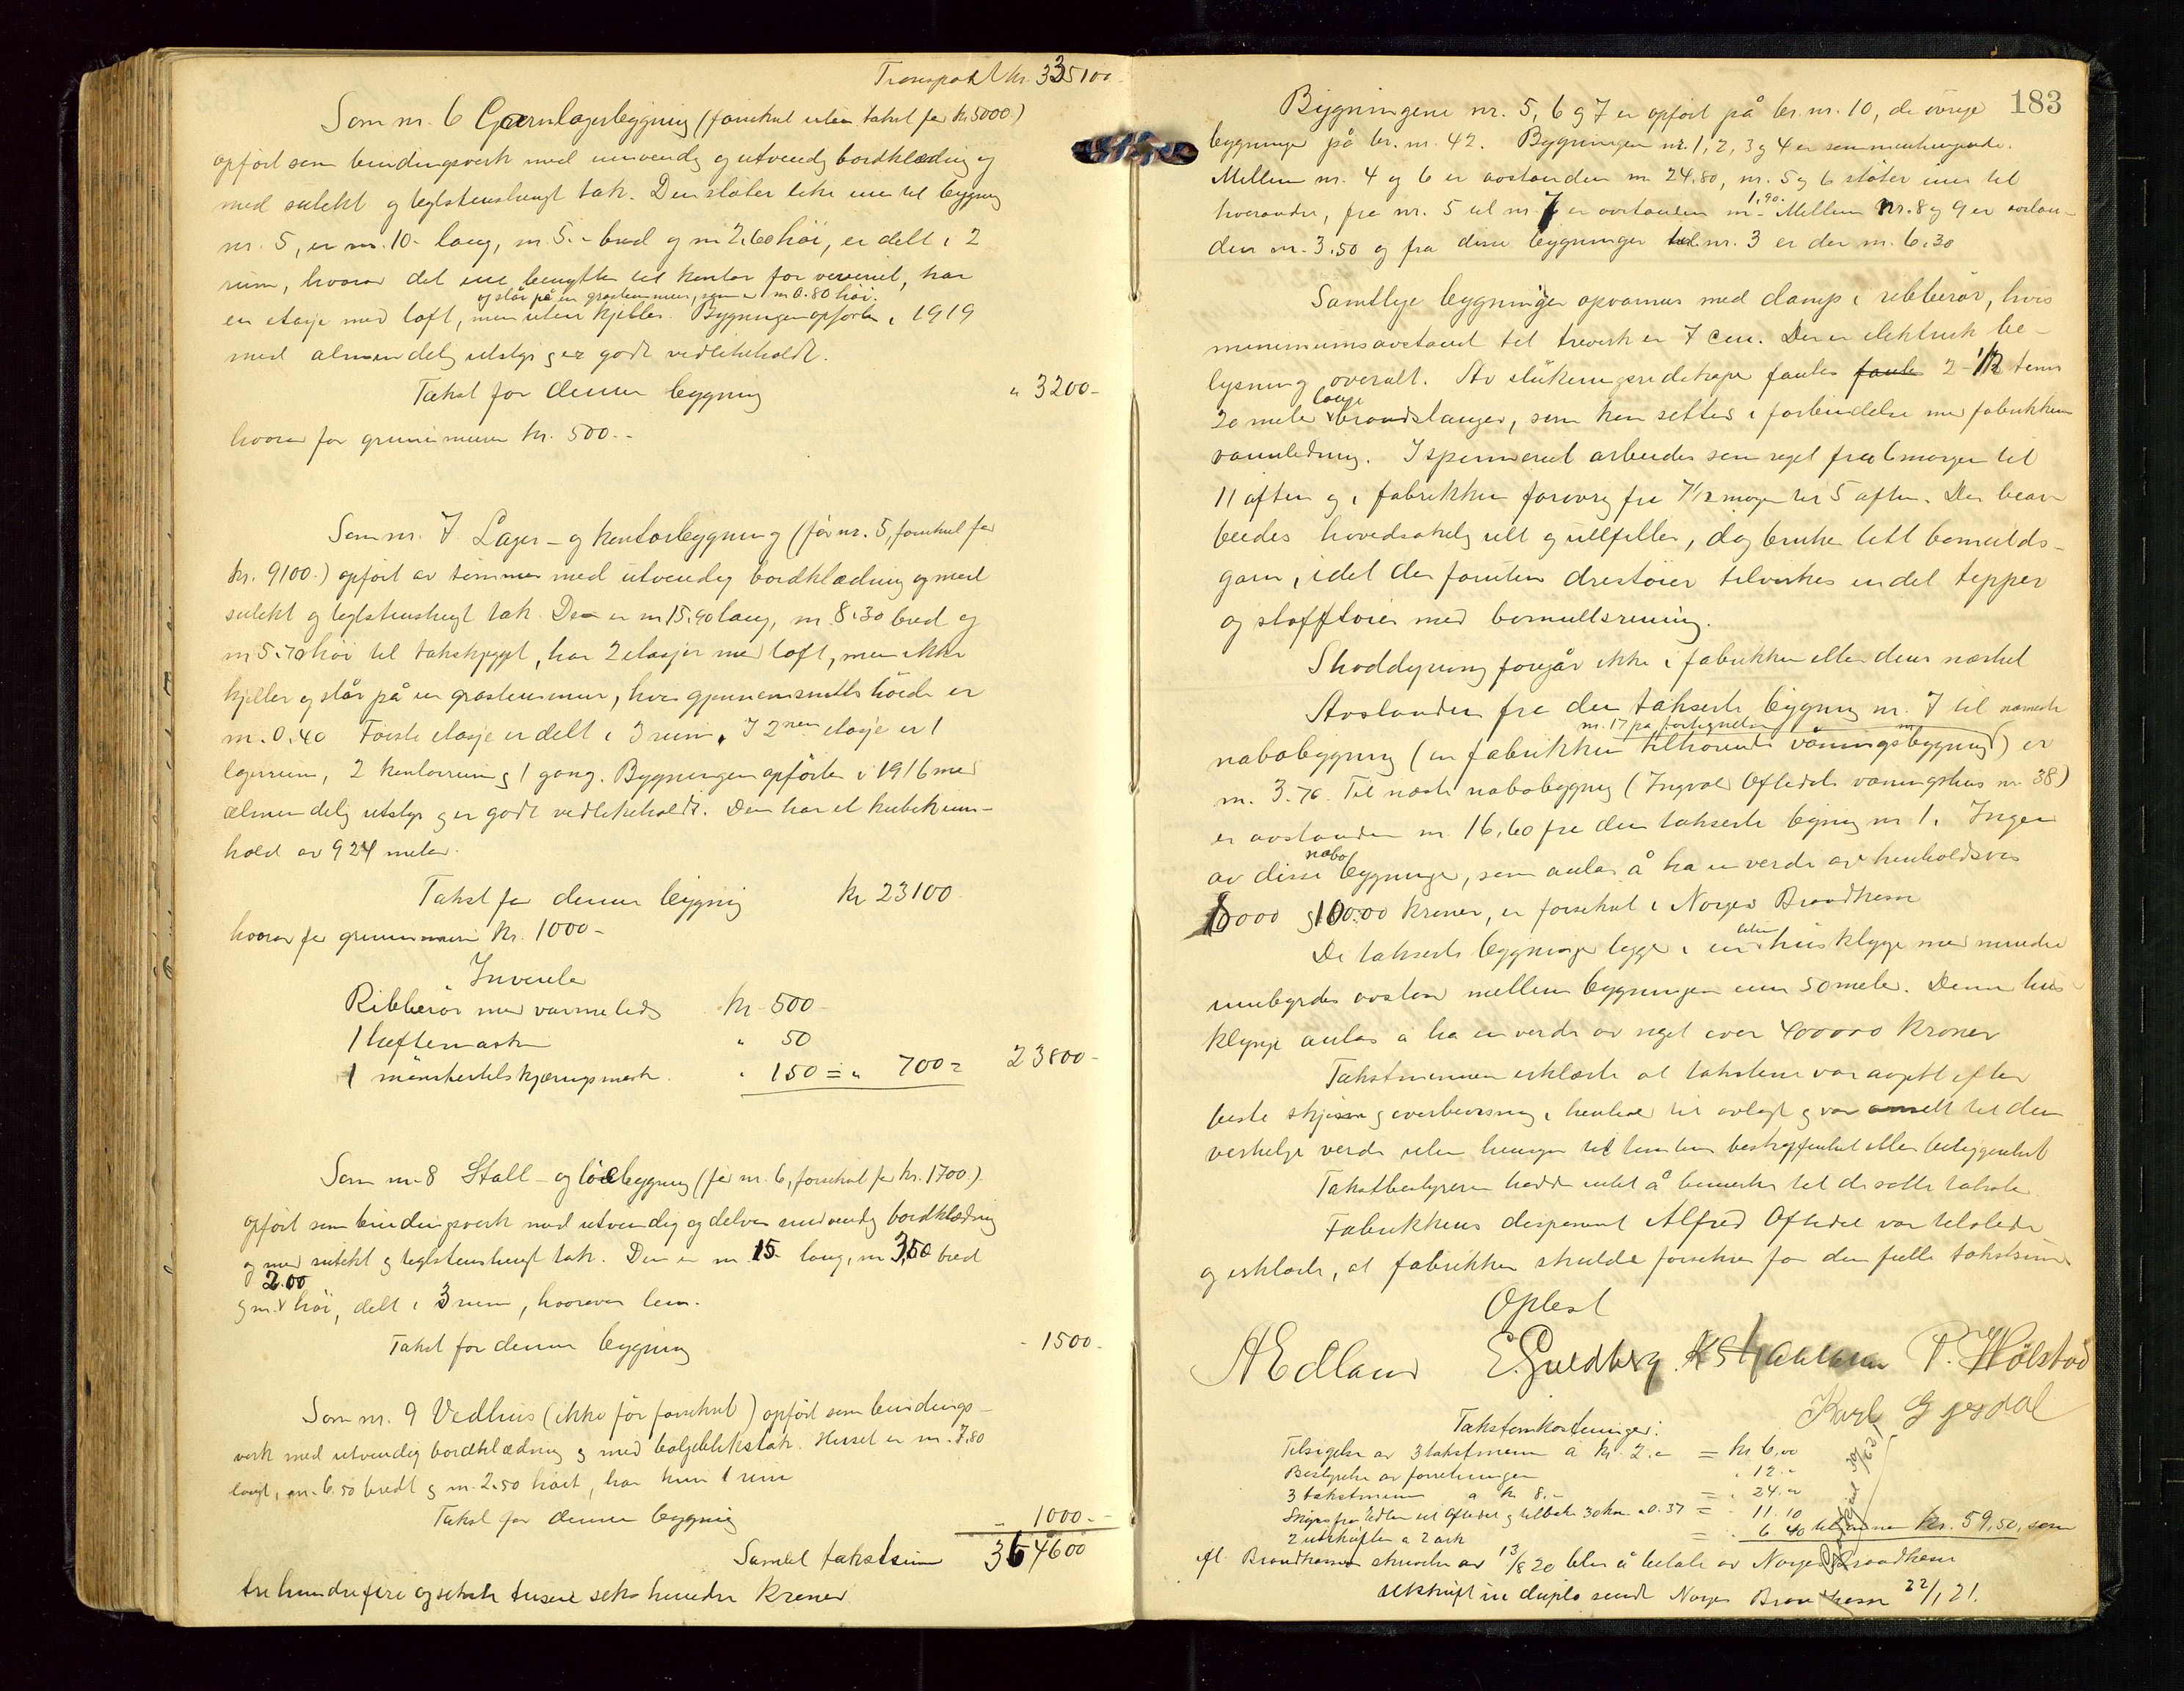 Transport kr. 335100-
Som nr. 6 Garnlagerbygning (forsikret uten takst for kr 5000)
opført som bindingsverk med innvendig og utvendig bordklædning og
med sutekt og teglstenshengt tak. Den støter like inn til bygning
nr. 5, er m. 10- lang, m. 5.- bred og m 2,60 høi, er delt i 2
rum, hvorav det ene benyttes til kontor for veveriet, har
og står på en gråstensmur, som er m 0.80 høi.
en etasje med loft, men uten kjeller. Bygningen opførtes i 1919
med almindelig utstyr og er godt vedlikeholdt.
Takst for denne bygning " 3200-
hvorav for grunnmuren kr. 500.-
Som nr. 7. Lager- og kontorbygning (før nr. 5, forsikret for
kr. 9100.) opført av tømmer med utvendig bordklædning og med
sutekt og teglstenshengt tak. Den er m 15,90 lang, m. 8.30 bred og
m 5.70 høi til takskjegget, har 2 etasjer med loft, men ikke
kjeller og står på en gråstensmur, hvis gjennemsnitts høide er
m. 0.40 Første etasje er delt i 3 rum. I 2nen etasje er 1
lagerrum, 2 kontorrum og 1 gang. Bygningen opførtes i 1916 med
almindelig utstyr og er godt vedlikeholdt. Den har et kubikinn-
hold av 924 meter.
Takst for denne bygning kr 23100.
hvorav for grunnmuren kr. 1000-
Inventar
Ribberør med varmeledn. kr. 500-
1 heftemaskin " 50
1 mønstertilskjæringsmask. " 150 = " 700= 23800-
Som nr. 8 Stall- og løebygning (før nr. 6, forsikret for kr. 1700.)
opført som bindingsverk med utvendig og delvis innvendig bordklædning
og med sutekt og teglstenshengt tak. Den er m 15 lang, m 3,50 bred
2.00
og m. høi, delt i 3 rum, hvorav lem.
Takst for denne bygning - 1500-
Som nr. 9 Vedhus (ikke før forsikret) opført som bindings-
verk med utvendig bordklædning og med bølgeblikstak. Huset er m. 7,80
langt, m. 6.50 bredt og m. 2.50 høit, har kun 1 rum
Takst for denne bygning - 1000.-
Samlet takstsum 364600
tre hundre fire og seksti tusen seks hundre kroner
183
Bygningene nr. 5, 6 og 7 er opført på br. nr. 10, de øvrige
bygninger på br. nr. 42. Bygningen nr. 1, 2, 3 og 4 er sammenhengende.
Mellem nr. 4 og 6 er avstanden m 24.80, nr. 5 og 6 støter inn til
hverandre, fra nr. 5 til nr 7 er avstanden m. 1,90. Mellem nr. 8 og 9 er avstan-
den m. 3.50 og fra disse bygninger til nr. 3 er der m. 6.30
Samtlige bygninger opvarmes med damp i ribberør, hvis
minimumsavstand til treverk er 7 cm. Der er elektrisk be-
lysning overalt. Av slukningsredskaper fantes 2 - 1 1/2 toms
20 meter lange brandslanger, som kan settes i forbindelse med fabrikkens
vannledning. I spinneriet arbeides som regel fra 6 morgen til
11 aften og i fabrikken forøvrig fra 7 1/2 morgen til 5 aften. Der bear-
beides hovedsakelig ull og ullfiller, dog brukes litt bomulds-
garn, idet der foruten drestøier tilvirkes en del tepper
og stofftøier med bomullsrenning.
Shoddyrivning foregår ikke i fabrikken eller dens nærhet
Avstanden fra den takserte bygning nr. 7 til nærmeste
nr. 17 på fortegnelsen
nabobygning (en fabrikken tilhørende våningsbygning) er
m. 3.76. Til næste nabobygning (Ingvald Oftedals våningshus nr 38)
er avstanden m 16,60 fra den takserte bygning nr 1. Ingen
av disse nabobygninger, som antas å ha en verdi av henholdsvis
10000 og 10000 kroner, er forsikret i Norges Brandkasse
De takserte bygninger ligger i en liten husklynge med mindre
innbyrdes avstand mellem bygningene enn 50 meter. Denne hus-
klynge antas å ha en verdi av noget over 400000 kroner
Takstmennene erklærte at takstene var avgitt efter
beste skjønn og overbevisning i henhold til avlagt og var ansatt til den
virkelige verdi uten hensyn til tomtens beskaffenhet eller beliggenhet
Takstbestyreren hadde intet å bemerke til de satte takster.
Fabrikkens disponent Alfred Oftedal var tilstede
og erklærte, at fabrikken skulde forsikres for den fulle takstsum.
Oplest
A Edland E. Svedberg P. Hølstad
Karl Gjesdal
Takstomkostninger:
Tilsigelse av 3 takstmenn a kr. 2.- = kr 6.00
Bestyrelse av forretningen " 12.-
3 takstmenn a kr 8.- = " 24.-
Skyss fra Edland til Oftedal og tilbake 30 km a 0.37 = " 11.10
2 utskrifter a 2 ark = " 6.40 tilsammen kr. 59,50, som
ifl. Brandkassens skrivelse av 13/8 20 blir å betale av Norges Brandkasse
Utskrift in duplo sendt Norges Brandkasse 22/1 21.